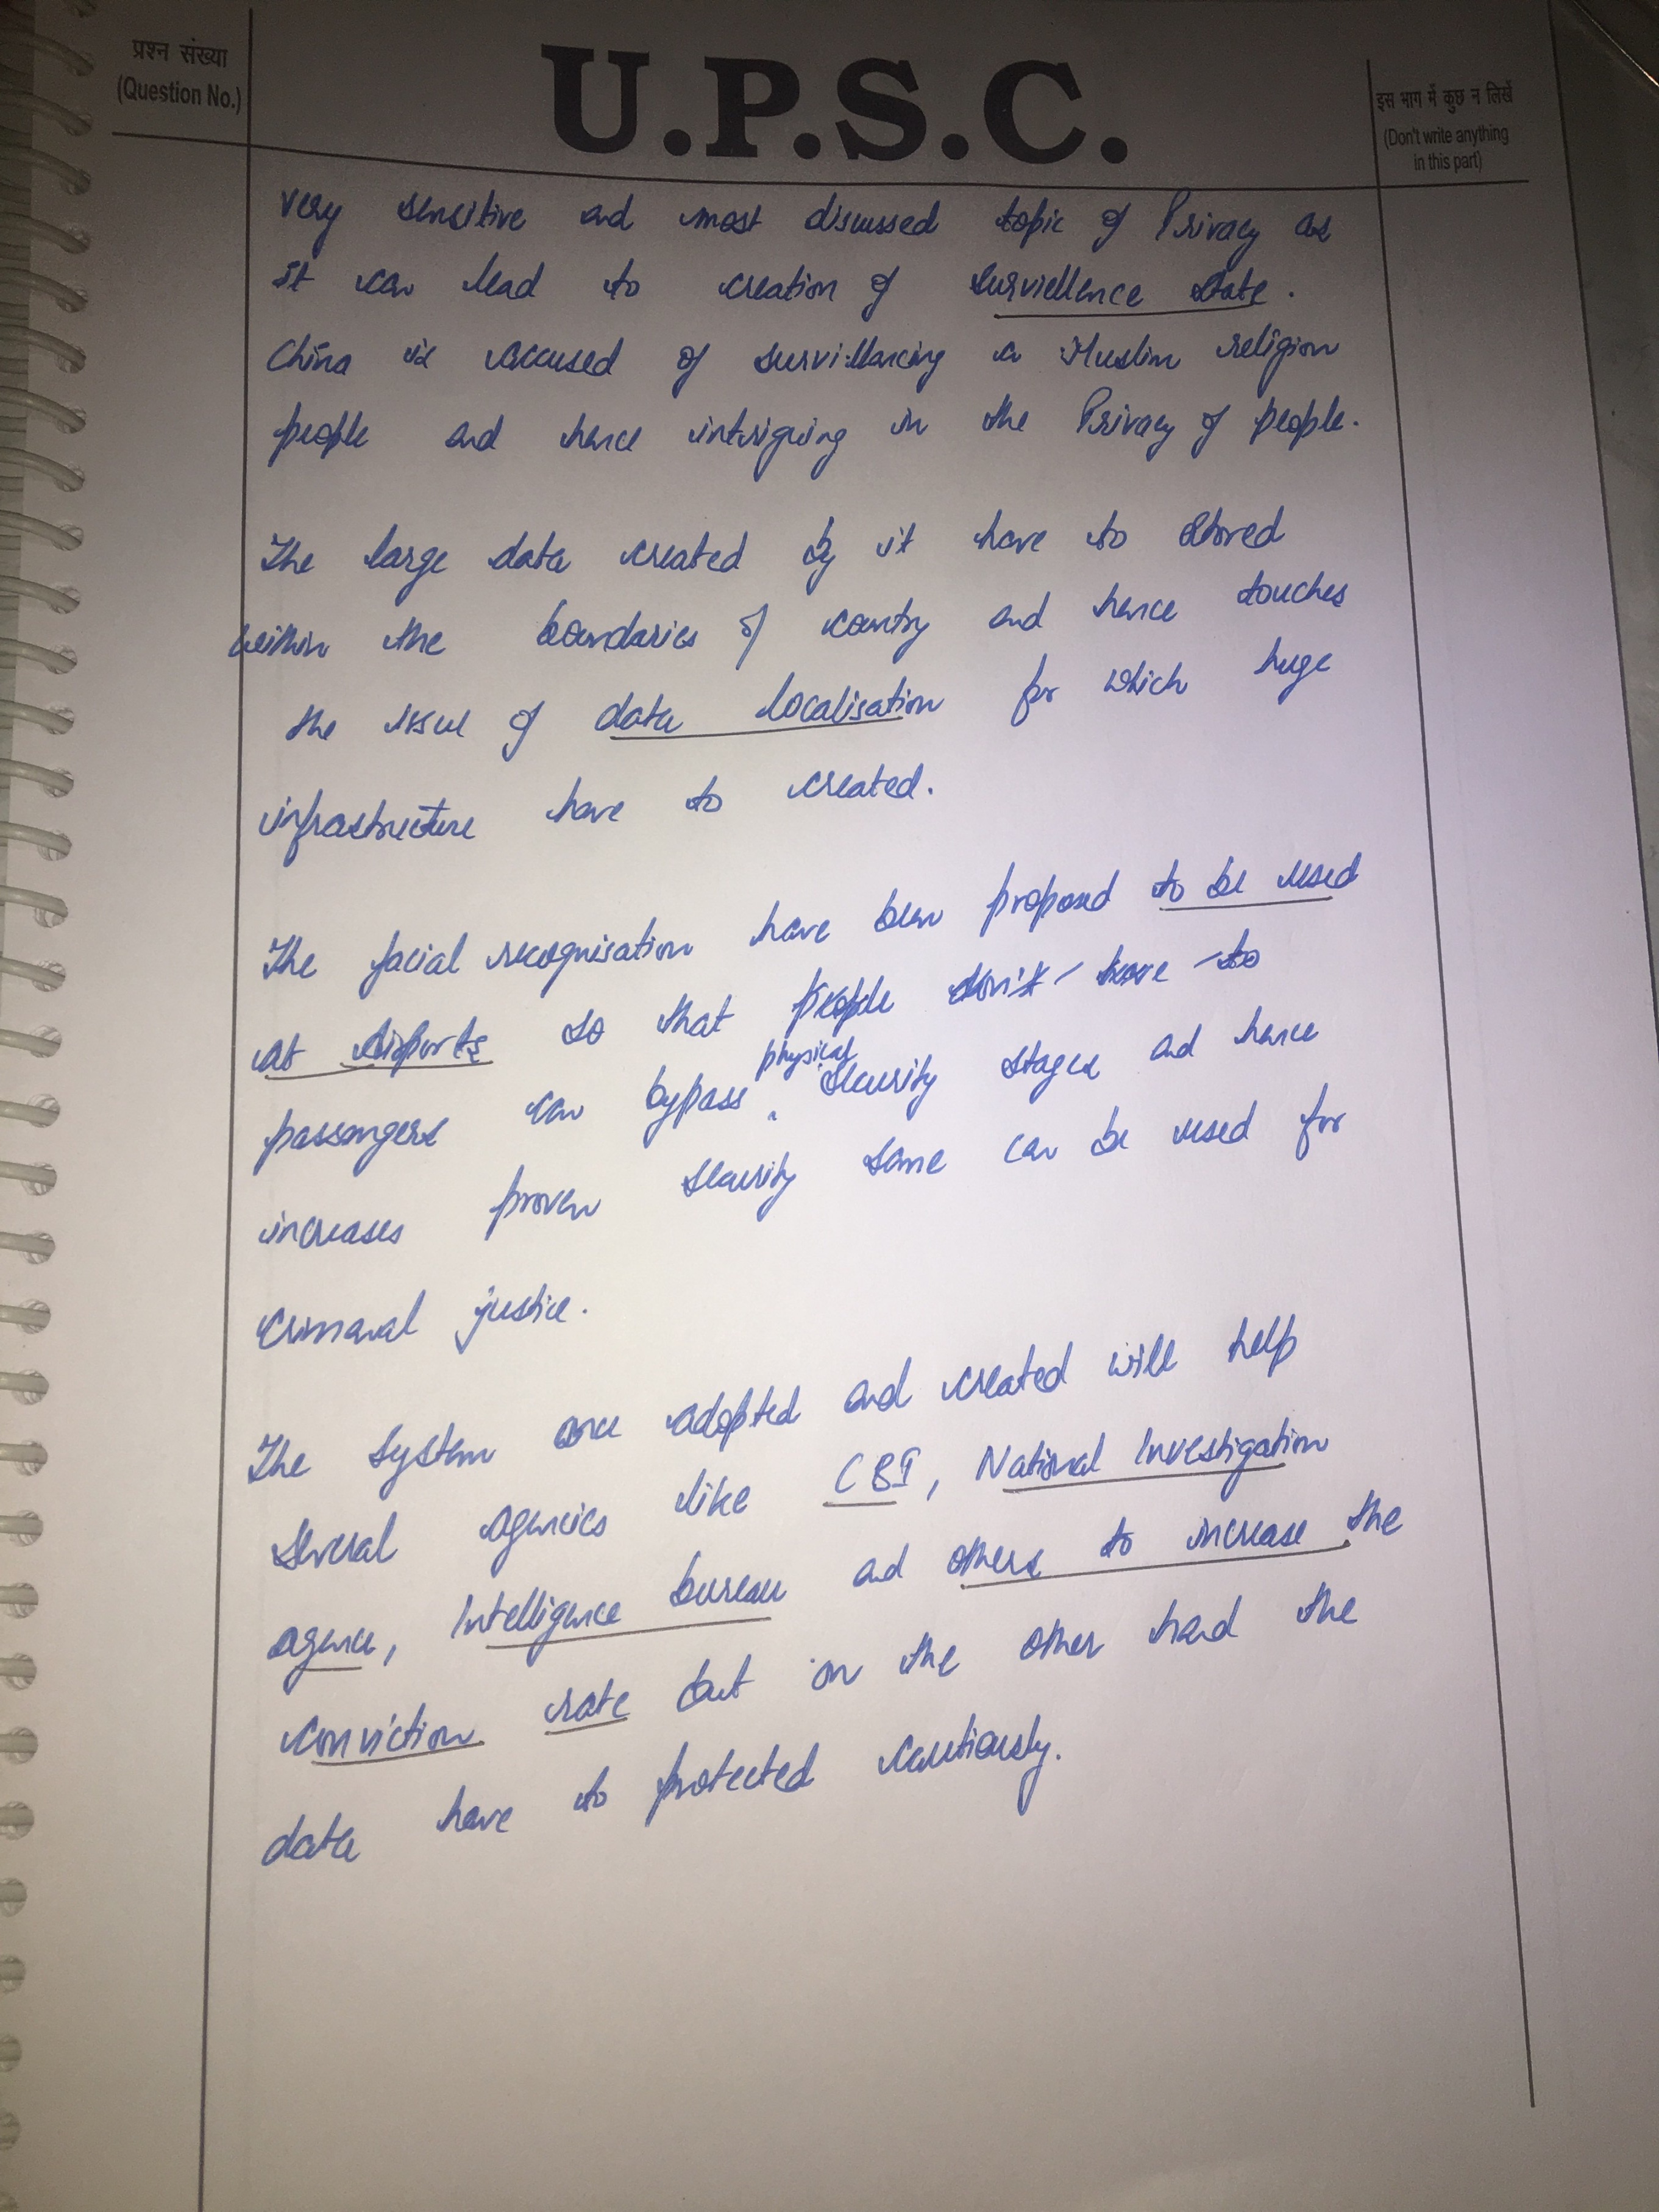 प्रश्न संख्या
(Question No.)
U.P.S.C.
इस भाग में कुछ न लिखें
(Don't write anything
in this part)
very sensitive and most discussed topic of Privacy as
it can lead to creation of surviellence state.
China is accused of survillancing a Muslim religion
people and hence intriguing in the Privacy of people.
The large data created by it have to stored
within the boundaries of country and hence touches
the issue of data localisation for which huge
infrastructure have to created.
The facial recognisation have been proposed to be used
at Airports so that people don't have to
passangers can bypass physical security stages and hence
increases proven security same can be used for
crimanal justice.
The system once adopted and created will help
several agencies like CBI, National Investigation
agence, Intelligence bureau and others to increase the
conviction rate but on the other hand the
data have to protected cautiously.